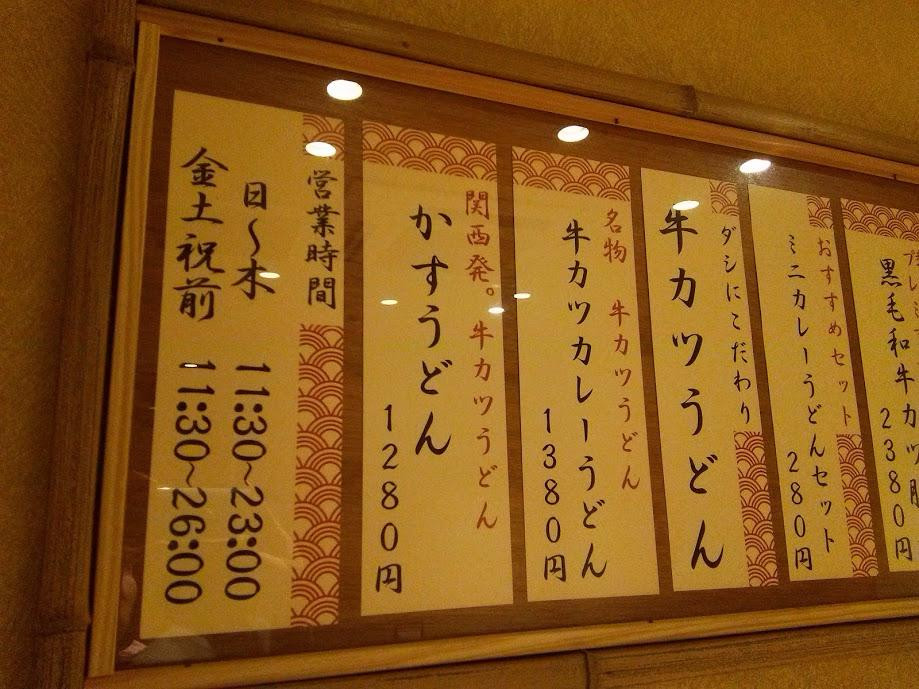 黒毛和牛カツ
2380円
おすすめセット
ミニカレーうどんセット
280円
ダシにこだわり
牛カツうどん
名物 牛カツうどん
牛カツカレーうどん
1380円
関西発。牛カツうどん
かすうどん
1280円
営業時間
日〜木 11:30〜23:00
金土祝前 11:30〜26:00